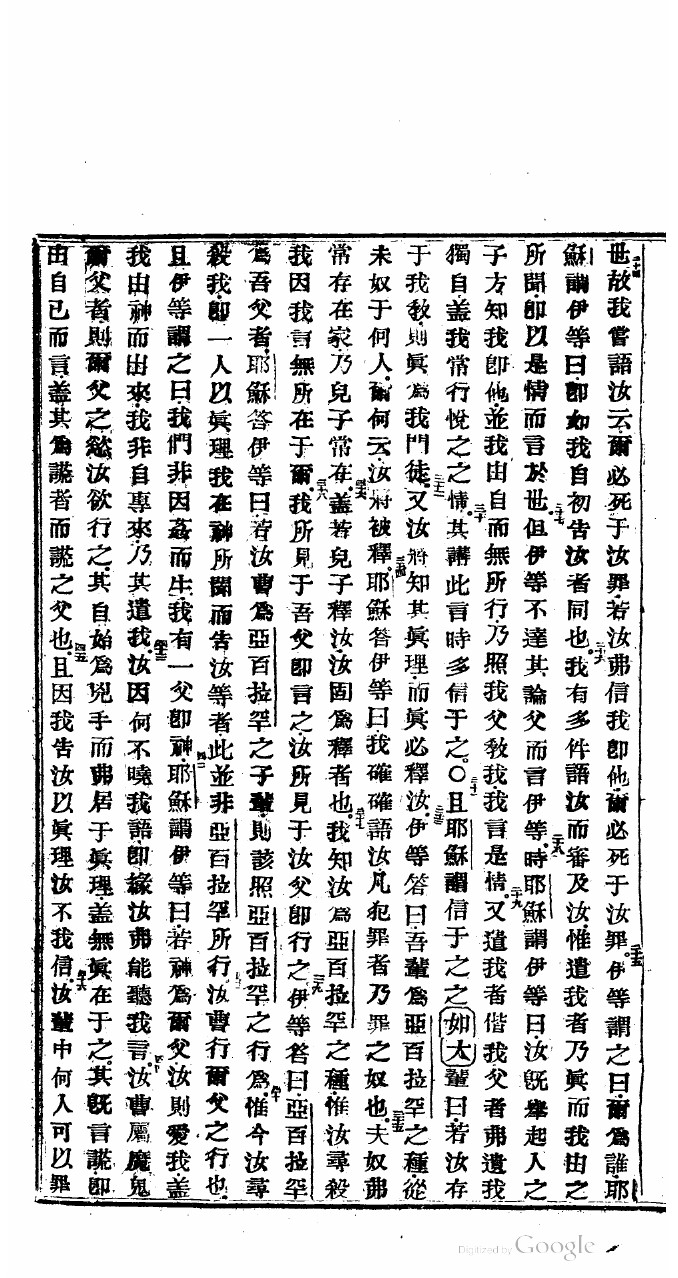 世故我嘗語汝云爾必死于汝罪若汝弗信我卽他爾必死于汝罪二十五伊等謂之曰爾爲誰耶
穌謂伊等曰卽如我自初吿汝者同也二十六我有多件語汝而審及汝惟遣我者乃眞而我由之
所聞卽以是情而言於世二十七但伊等不達其論父而言伊等二十八時耶穌謂伊等曰汝旣舉起人之
子方知我卽他並我由自而無所行乃照我父敎我我言是情二十九又遣我者偕我父者弗遺我
獨自蓋我常行悅之之情三十其講此言時多信于之〇三十一且耶穌謂信于之之如大輩曰若汝存
于我敎則眞爲我門徒三十二又汝將知其眞理而眞必釋汝三十三伊等答曰吾輩爲亞百拉罕之種從
未奴于何人爾何云汝將被釋三十四耶穌答伊等曰我確確語汝凡犯罪者乃罪之奴也三十五夫奴弗
常存在家乃兒子常在三十六蓋若兒子釋汝汝固爲釋者也三十七我知汝爲亞百拉罕之種惟汝尋殺
我因我言無所在于爾三十八我所見于吾父卽言之汝所見于汝父卽行之三十九伊等答曰亞百拉罕
爲吾父者耶穌答伊等曰若汝曹爲亞百拉罕之子輩則該照亞百拉罕之行爲四十惟今汝尋
殺我卽一人以眞理我在神所聞而吿汝等者此並非亞百拉罕所行四十一汝曹行爾父之行也
且伊等謂之曰我們非因姦而生我有一父卽神四十二耶穌謂伊等曰若神爲爾父汝則愛我蓋
我由神而出來我非自專來乃其遣我四十三汝因何不曉我語卽緣汝弗能聽我言四十四汝曹屬魔鬼
爾父者則爾父之慾汝欲行之其自始爲兇手而弗居于眞理蓋無眞在于之其旣言謊卽
由自己而言蓋其爲謊者而謊之父也四十五且因我吿汝以眞理汝不我信四十六汝輩中何人可以罪
Digitized by Google